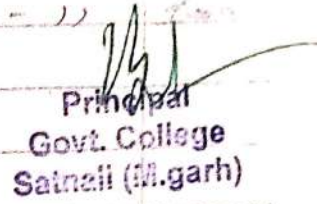 Principal
Govt. College
Satnali (M.garh)